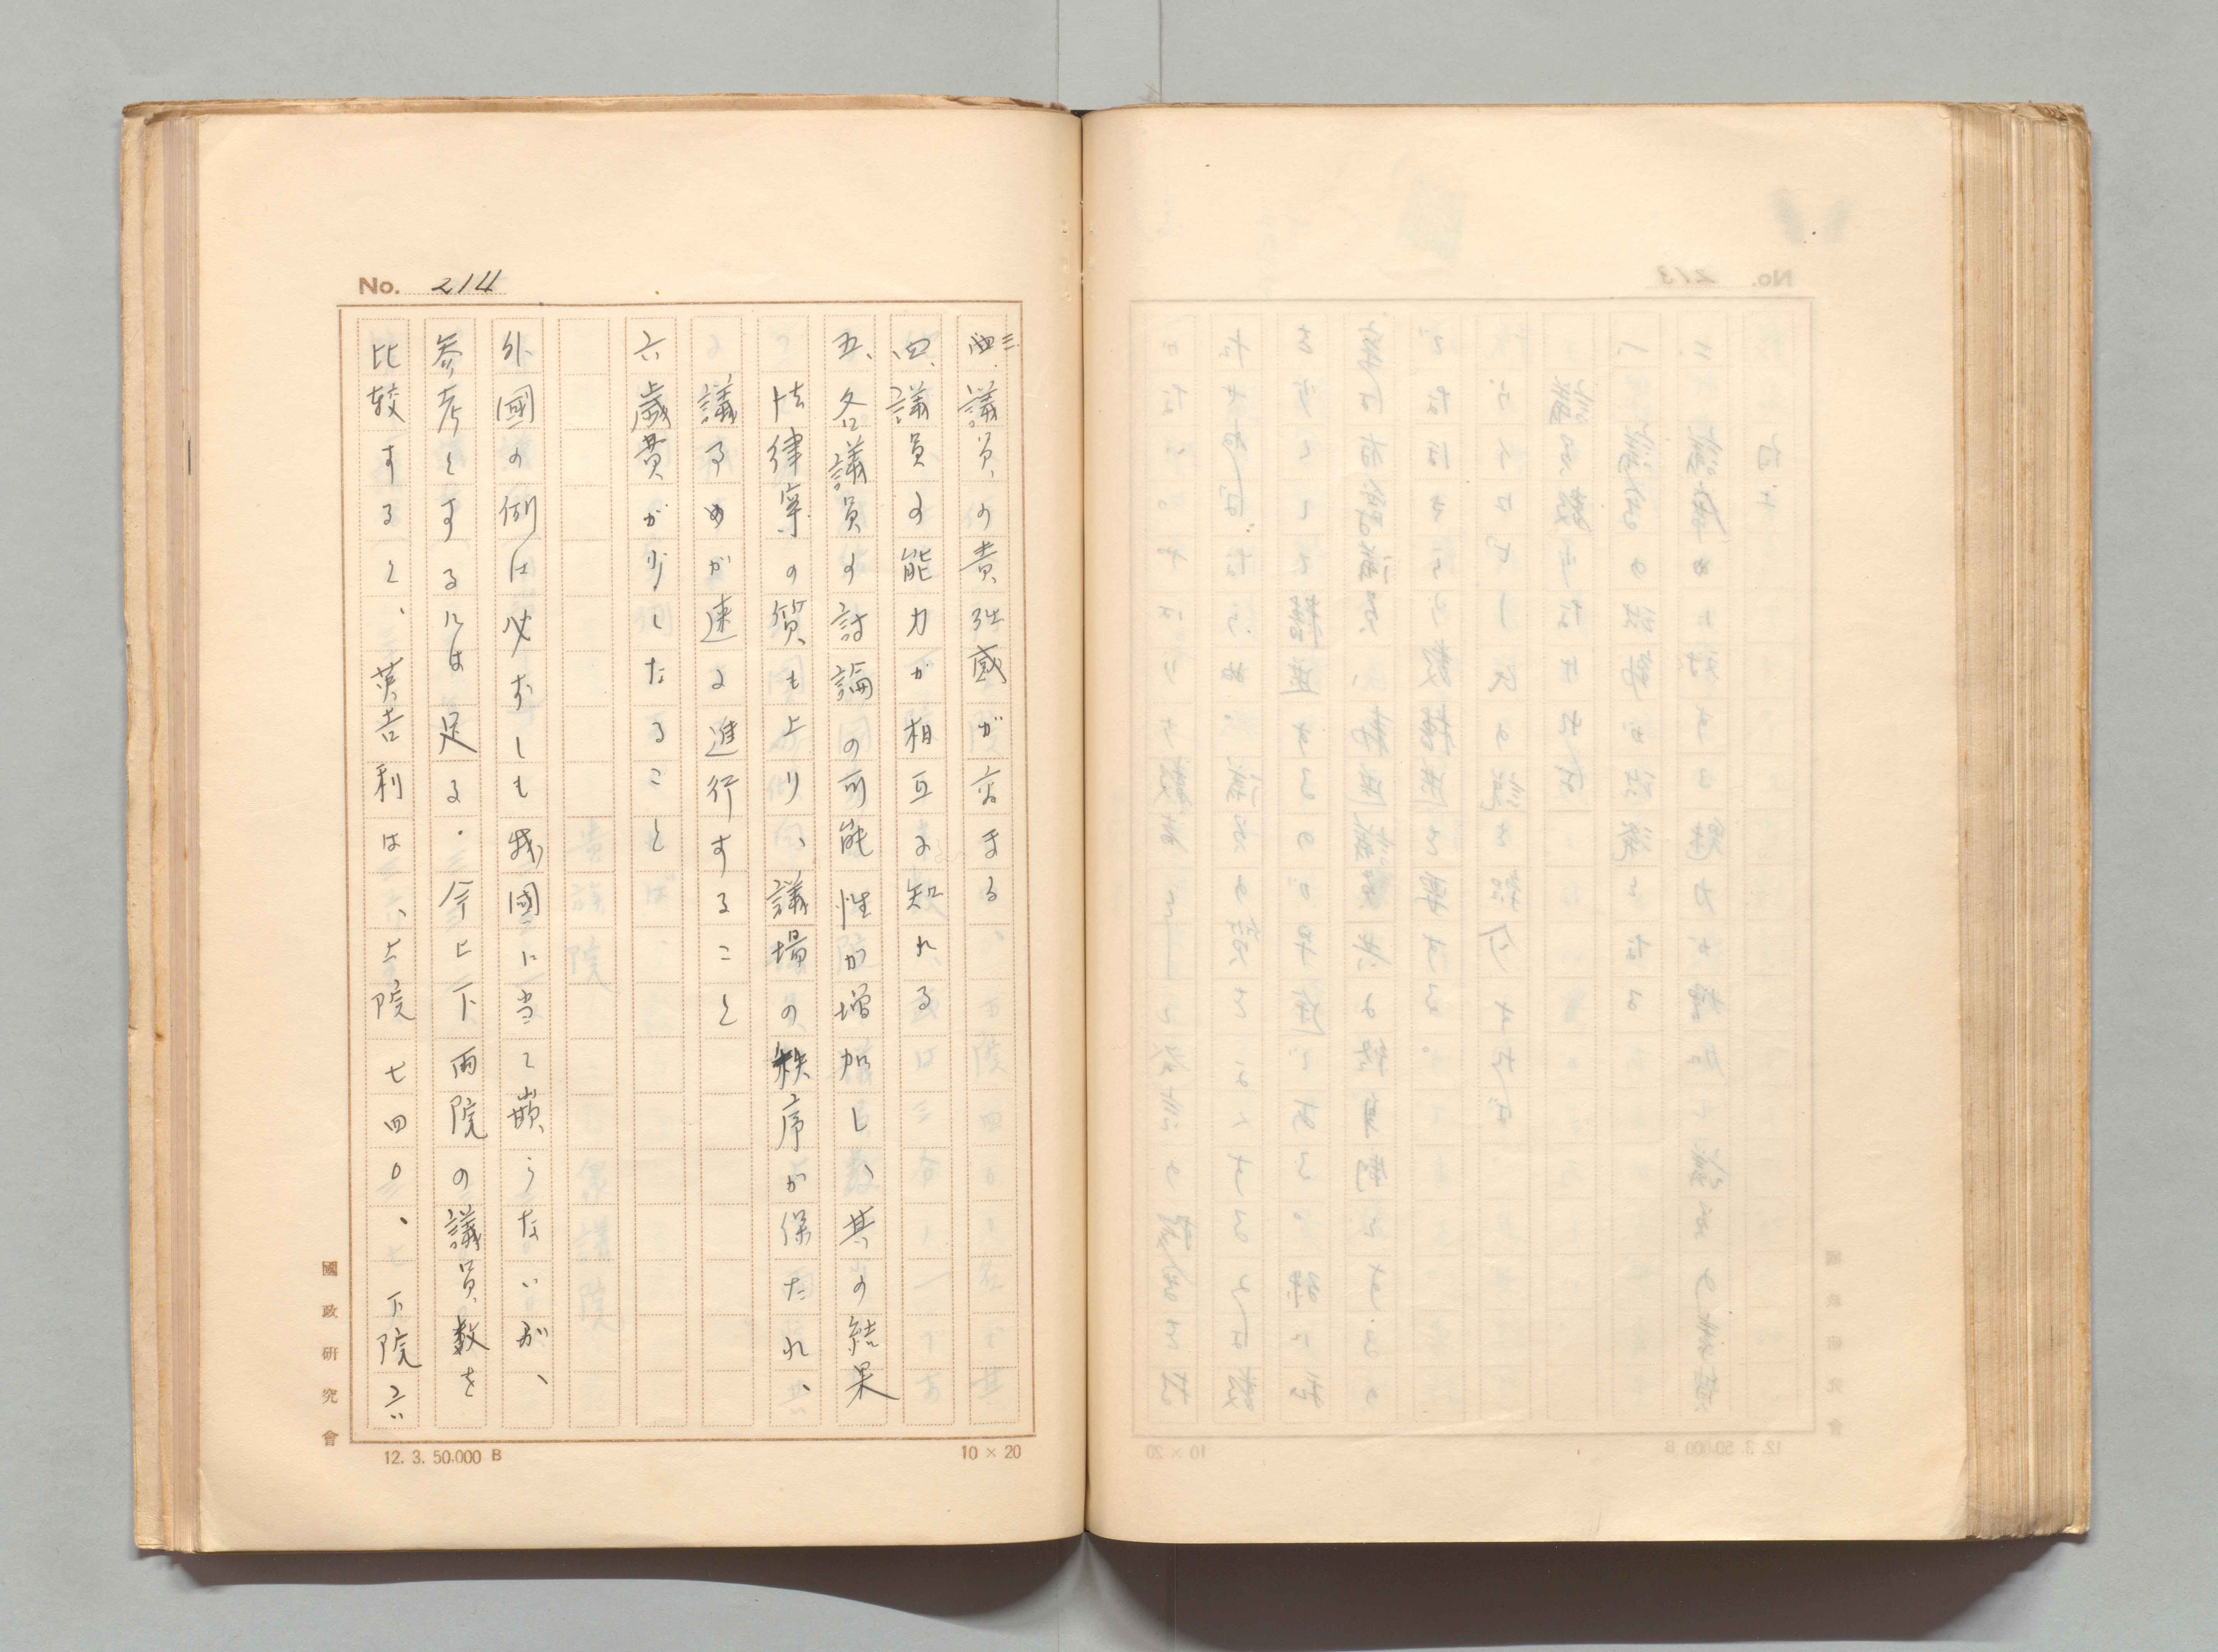 No. 214
三、議員の責任感が高まる
四、議員の能力が相互に知れる
五、各議員の討論の可能性が増加し、其の結果
法律案の質も上り、議場の秩序が保たれ、
議事めが速に進行すること
六、歳費が少しなること
外國の例は必ずしも我國に当て嵌らないが、
参考とするには足る。今上下両院の議員数を
比較すると、英吉利は、上院七四〇、下院六
國政研究會
12. 3. 50.000 B
10 × 20